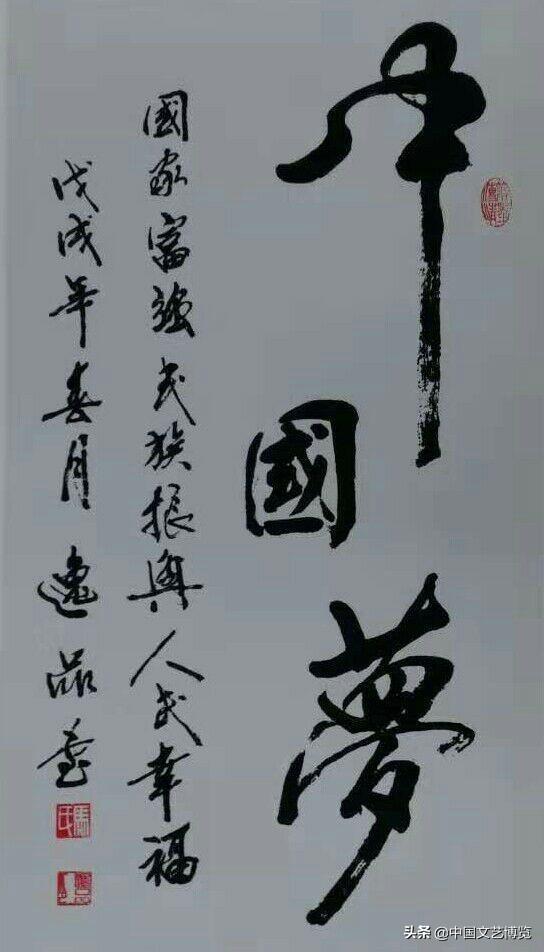 中國夢
國家富强民族振興人民幸福
戊戌年春月逸品
馬氏
头条 @中国文艺博览